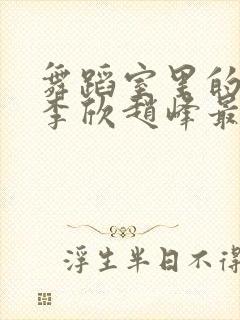 舞蹈室里的
李欣赵峰最
浮生半日不得